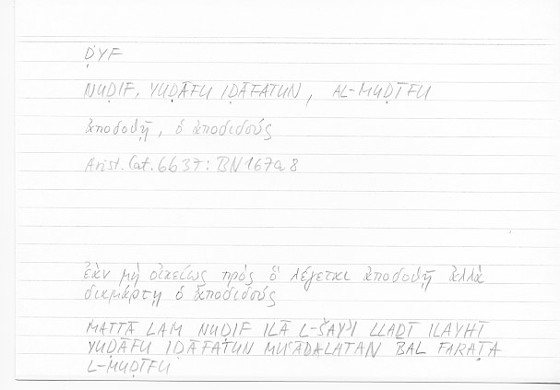 ḌYF
NUḌIF, YUḌĀFU IḌĀFATUN, AL-MUḌĪFU
ἀποδοθῇ, ὁ ἀποδιδούς
Arist. Cat. 6b37: BN 167a8
ἐὰν μὴ οἰκείως πρὸς ὃ λέγεται ἀποδοθῇ ἀλλὰ
διαμάρτῃ ὁ ἀποδιδούς
MATTĀ LAM NUḌIF ILĀ L-ŠAYʾI LLAḎĪ ILAYHI
YUḌĀFU IḌĀFATUN MUʿĀDALATAN BAL FARAṬA
L-MUḌĪFU